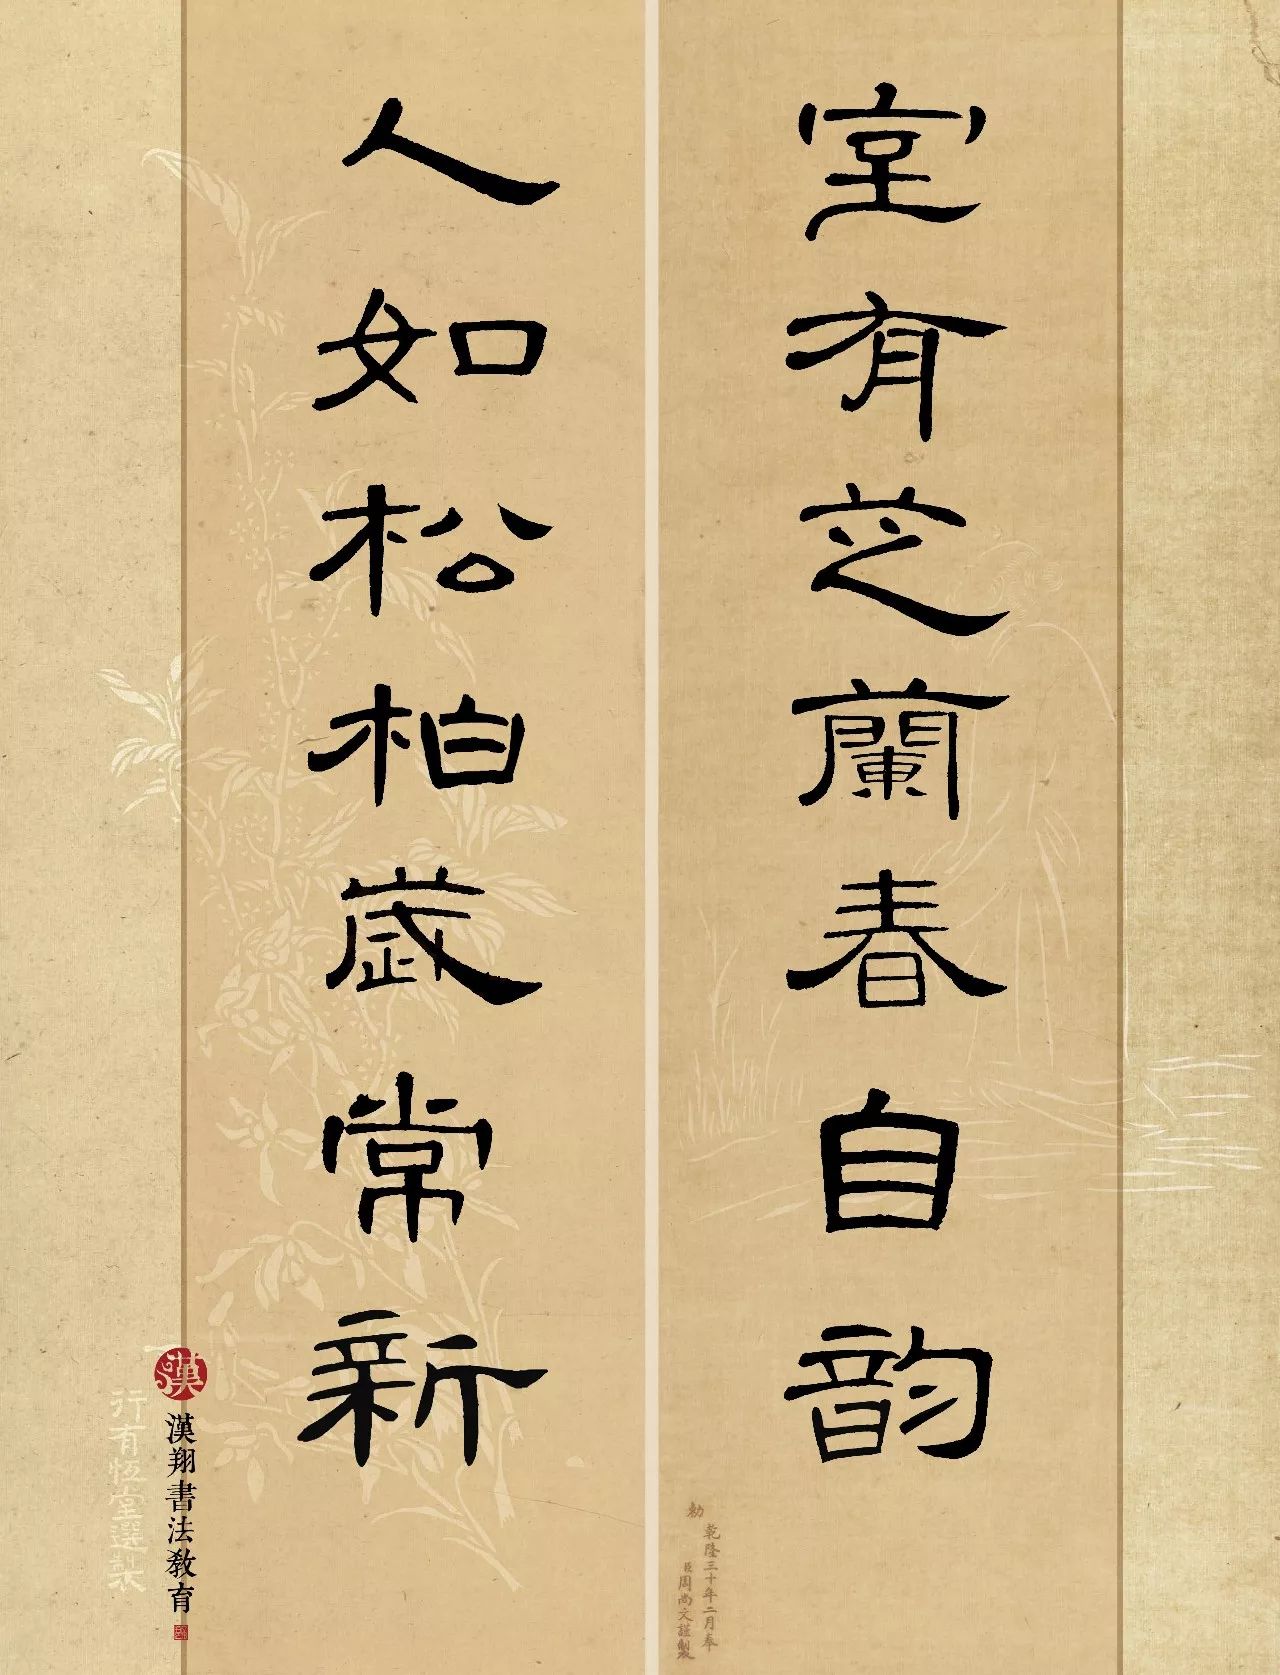 室有芝蘭春自韵
人如松柏歲常新
勅
乾隆三十年二月奉
臣周尚文謹製
漢
漢翔書法教育
行有恆堂選製